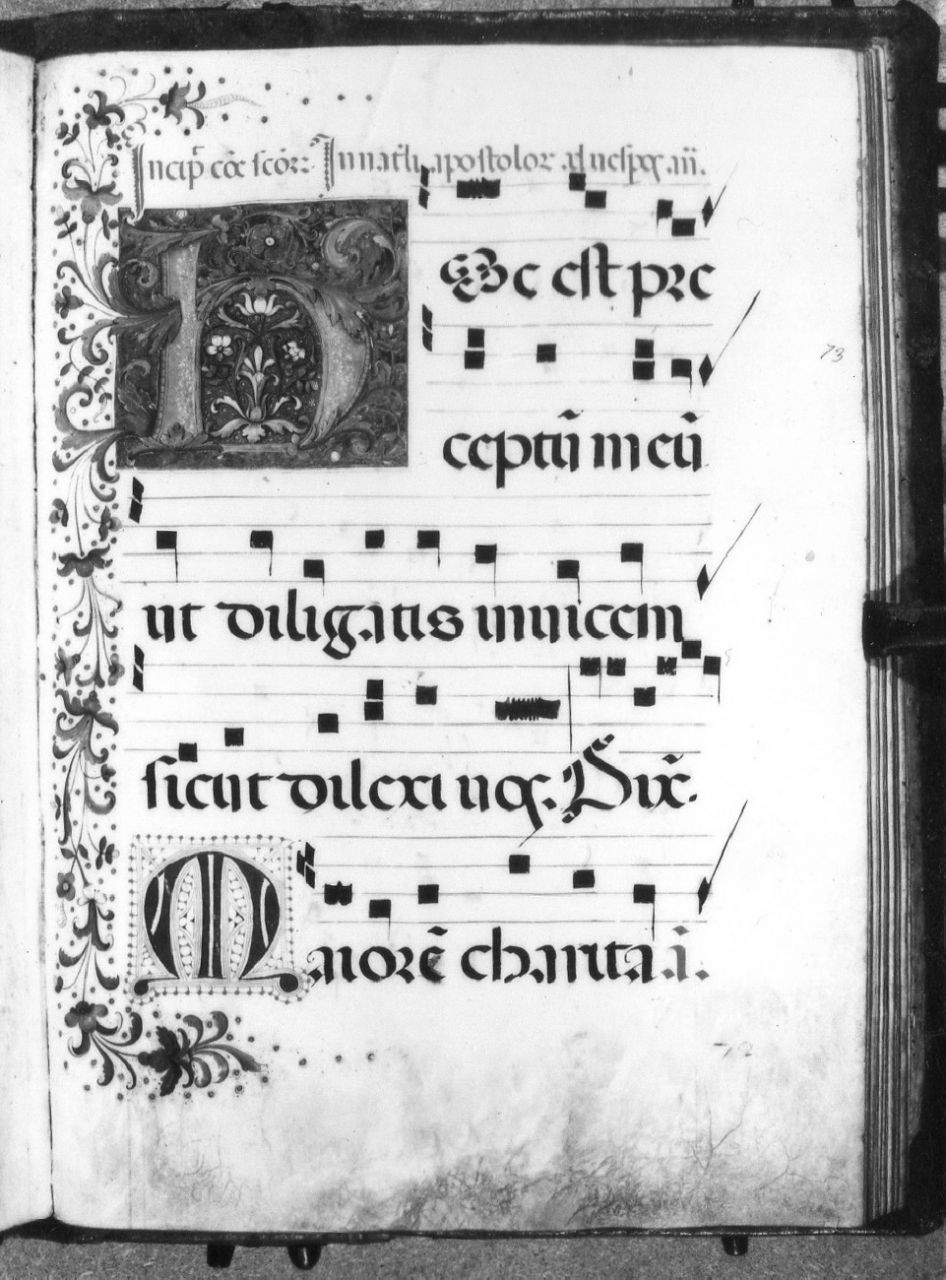 Incip̄ cōē sc̄or̄. In nat̄li apostolor ad vesp̄ꝫ an̄.
HEc est pre
73
ceptū meū
ut diligatis inuicem
sicut dilexi uos. Dix̄.
Maiorē charita a.